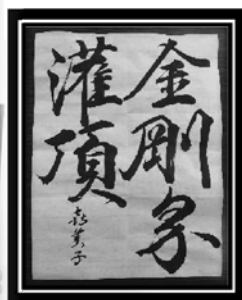 金剛界
灌頂
喜美子